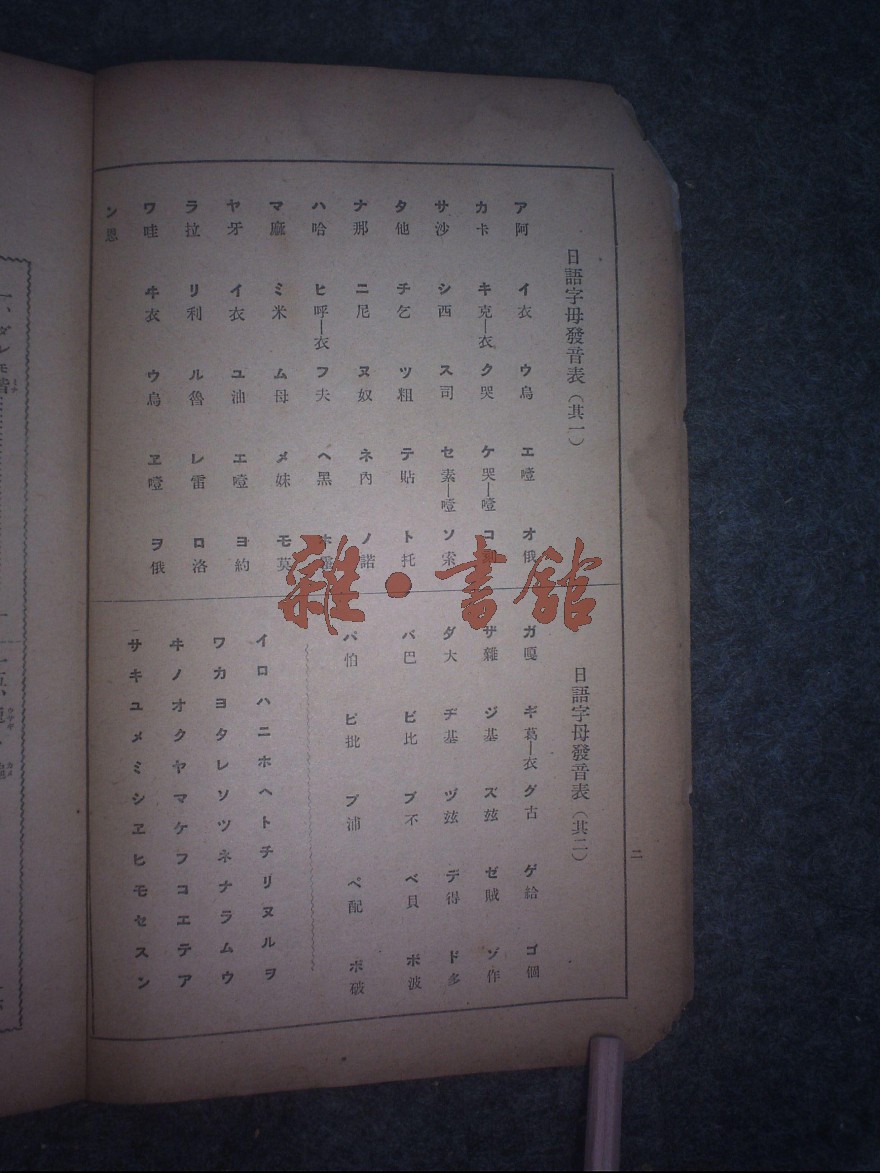 二
日語字母發音表（其一）
ア阿 イ衣 ウ烏 エ噎 オ俄
カ卡 キ克—衣 ク哭 ケ哭—噎 コ
サ沙 シ西 ス司 セ素—噎 ソ索
タ他 チ乞 ツ粗 テ貼 ト托
ナ那 ニ尼 ヌ奴 ネ內 ノ諾
ハ哈 ヒ呼—衣 フ夫 ヘ黑 ホ
マ麻 ミ米 ム母 メ妹 モ莫
ヤ牙 イ衣 ユ油 エ噎 ヨ約
ラ拉 リ利 ル魯 レ雷 ロ洛
ワ哇 ヰ衣 ウ烏 ヱ噎 ヲ俄
ン恩
日語字母發音表（其二）
ガ嘎 ギ葛—衣 グ古 ゲ給 ゴ個
ザ雜 ジ基 ズ玆 ゼ賊 ゾ作
ダ大 ヂ基 ヅ玆 デ得 ド多
バ巴 ビ比 ブ不 ベ貝 ボ波
パ怕 ピ批 プ浦 ペ配 ポ破
イロハニホヘトチリヌルヲ
ワカヨタレソツネナラムウ
ヰノオクヤマケフコエテア
サキユメミシヱヒモセスン
雜·書館